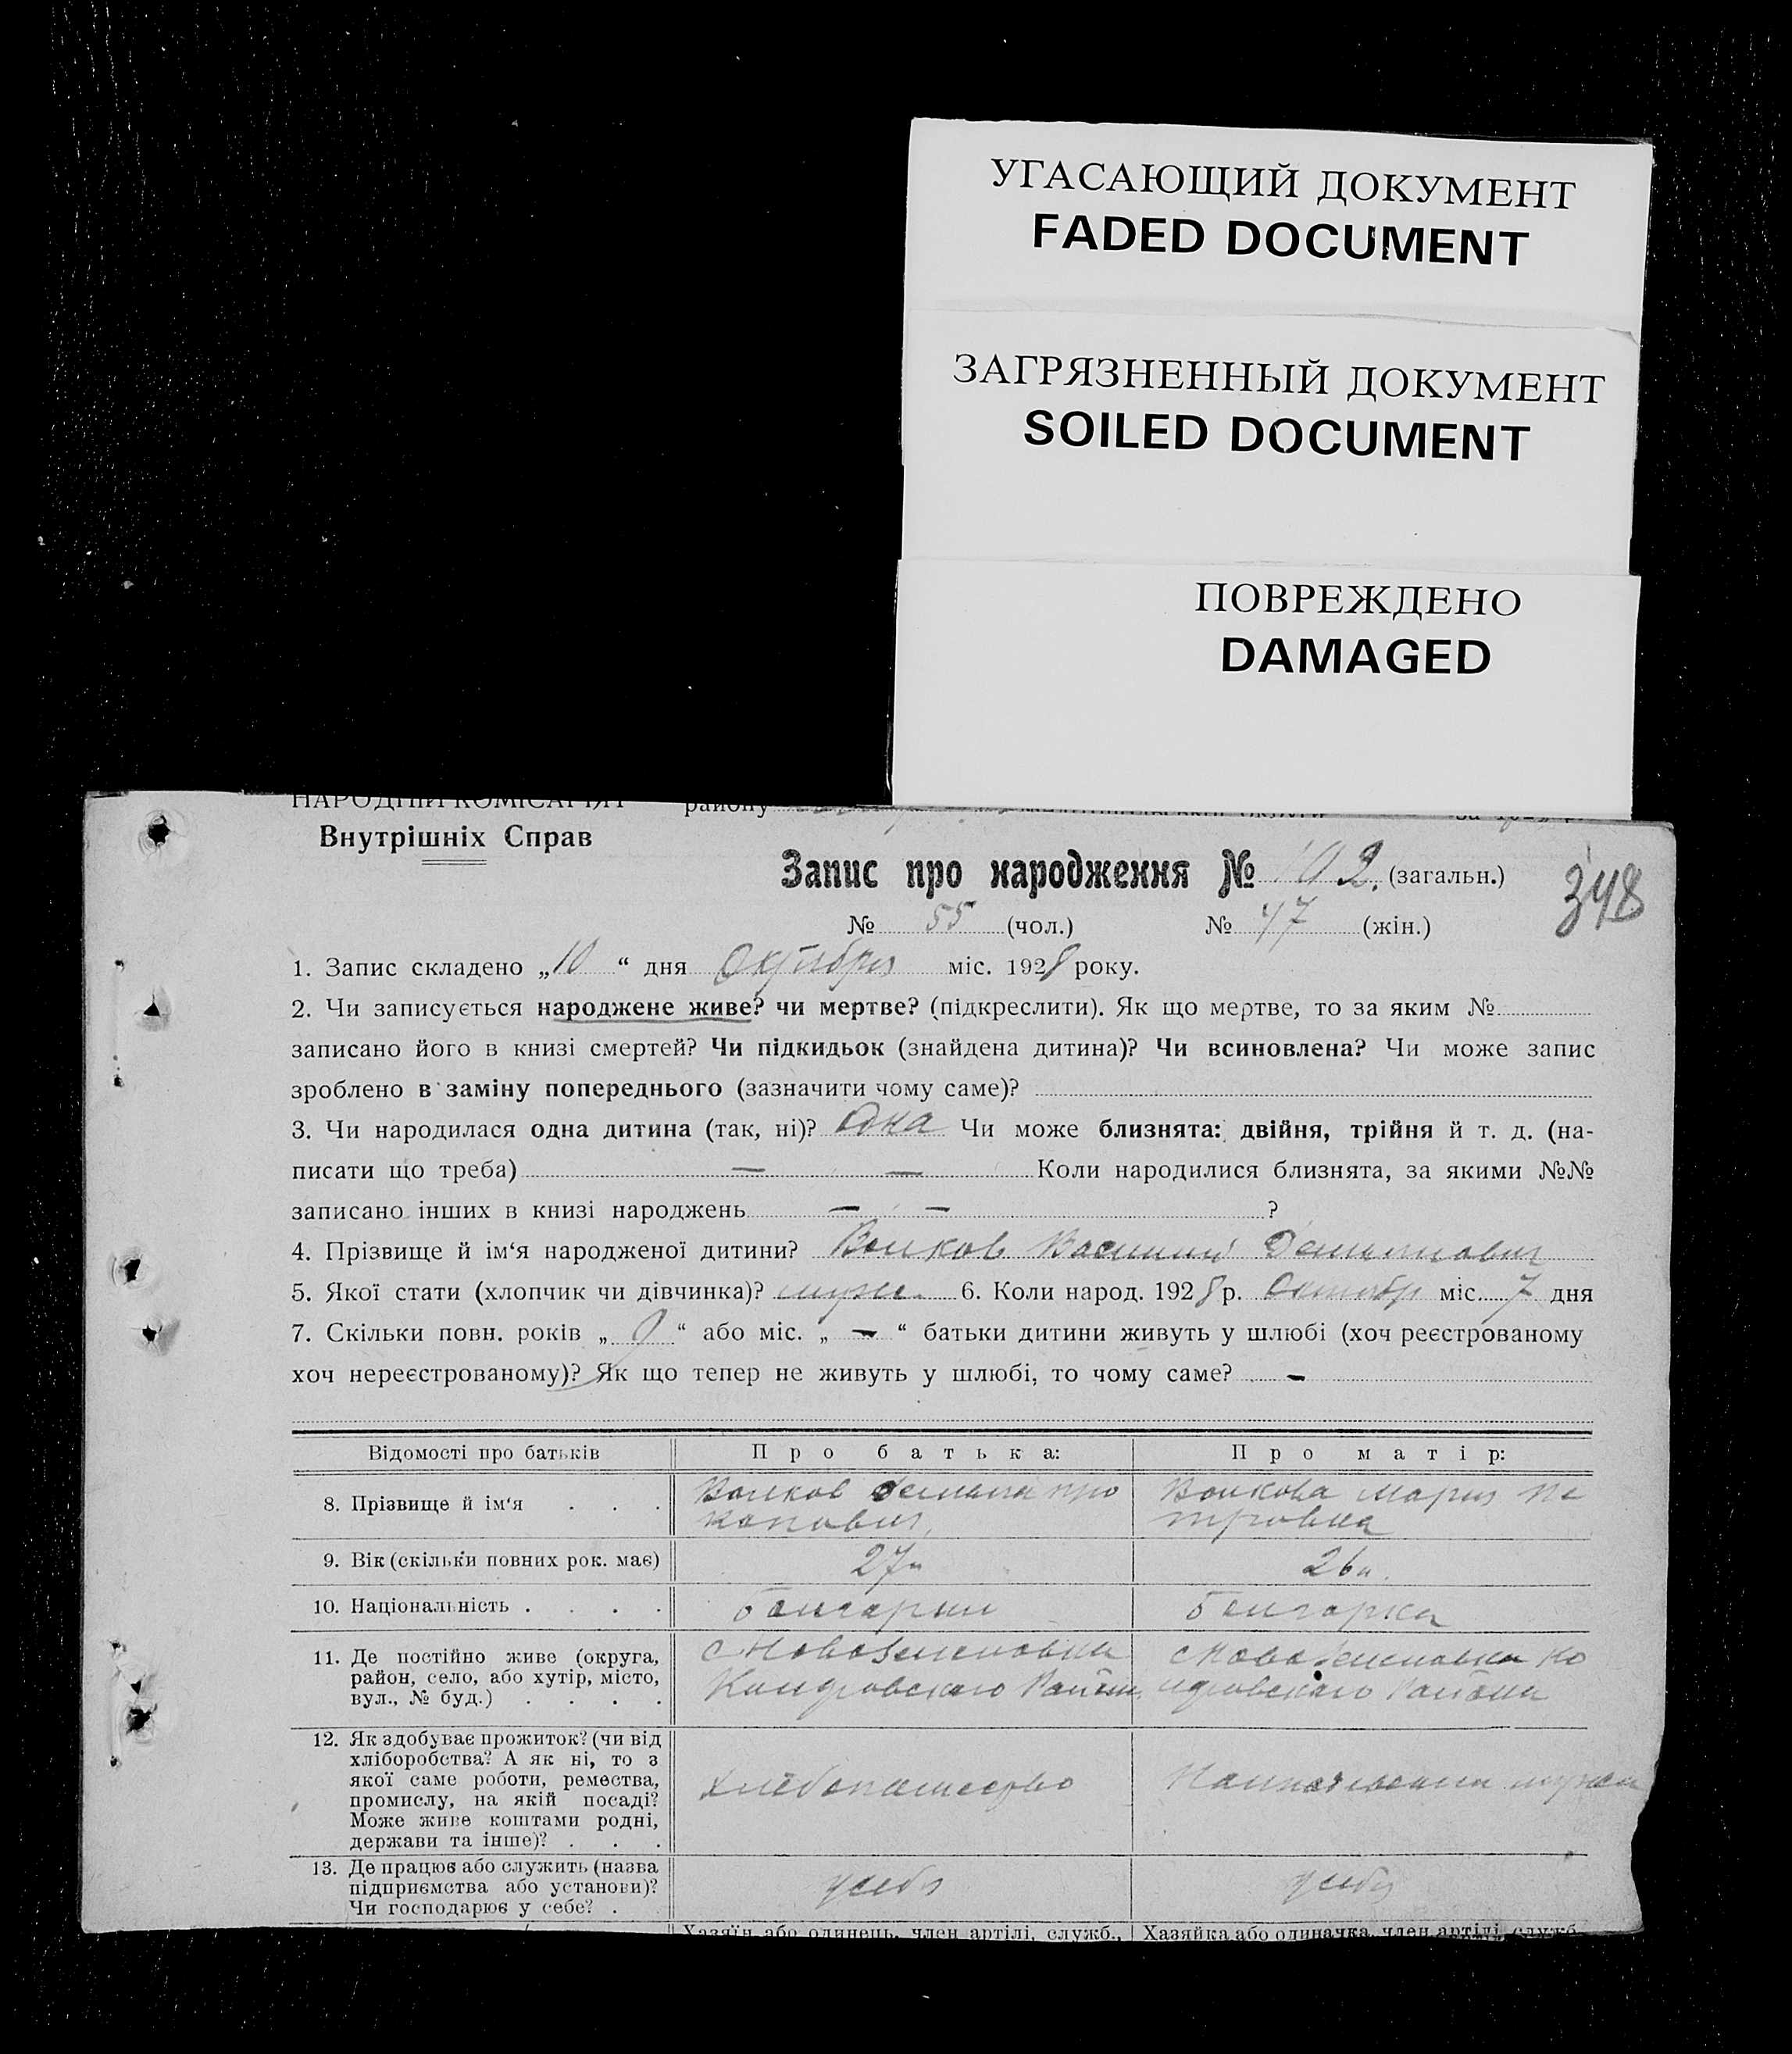 УГАСАЮЩИЙ ДОКУМЕНТ
FADED DOCUMENT
ЗАГРЯЗНЕННЫЙ ДОКУМЕНТ
SOILED DOCUMENT
ПОВРЕЖДЕНО
DAMAGED
НАРОДНІЙ КОМІСАРІЯТ району
Внутрішніх Справ
Запис про народження № 102. (загальн.)
348
№ 55 (чол.) № 47 (жін.)
1. Запис складено „10“ дня Октября міс. 1928 року.
2. Чи записується народжене живе? чи мертве? (підкреслити). Як що мертве, то за яким №
записано його в книзі смертей? Чи підкидьок (знайдена дитина)? Чи всиновлена? Чи може запис
зроблено в заміну попереднього (зазначити чому саме)?
3. Чи народилася одна дитина (так, ні)? Одна Чи може близнята: двійня, трійня й т. д. (на-
писати що треба) — — Коли народилися близнята, за якими №№
записано інших в книзі народжень — — ?
4. Прізвище й ім‘я народженої дитини? Волков Василий
5. Якої стати (хлопчик чи дівчинка)? муж. 6. Коли народ. 1928 р. Октябр міс. 7 дня
7. Скільки повн. років „ “ або міс. „ — “ батьки дитини живуть у шлюбі (хоч реєстрованому
хоч нереєстрованому)? Як що тепер не живуть у шлюбі, то чому саме? —
Відомості про батьків Про батька: Про матір:
8. Прізвище й ім‘я . . . Волков про
копович, Волкова Мария Пе
тровна
9. Вік (скільки повних рок. має) 27л 26л.
10. Національність . . . . болгарин болгарка
11. Де постійно живе (округа,
район, село, або хутір, місто,
вул., № буд.) . . . .
с
районна
с Ко
района
12. Як здобуває прожиток? (чи від
хліборобства? А як ні, то з
якої саме роботи, ремества,
промислу, на якій посаді?
Може живе коштами родні,
держави та інше)? . . .
хлебопашество
мужа
13. Де працює або служить (назва
підприємства або установи)?
Чи господарює у себе? .
у себя
у себя
Хазяїн або одинець, член артілі, служб., Хазяйка або одиначка, член артілі, служб.